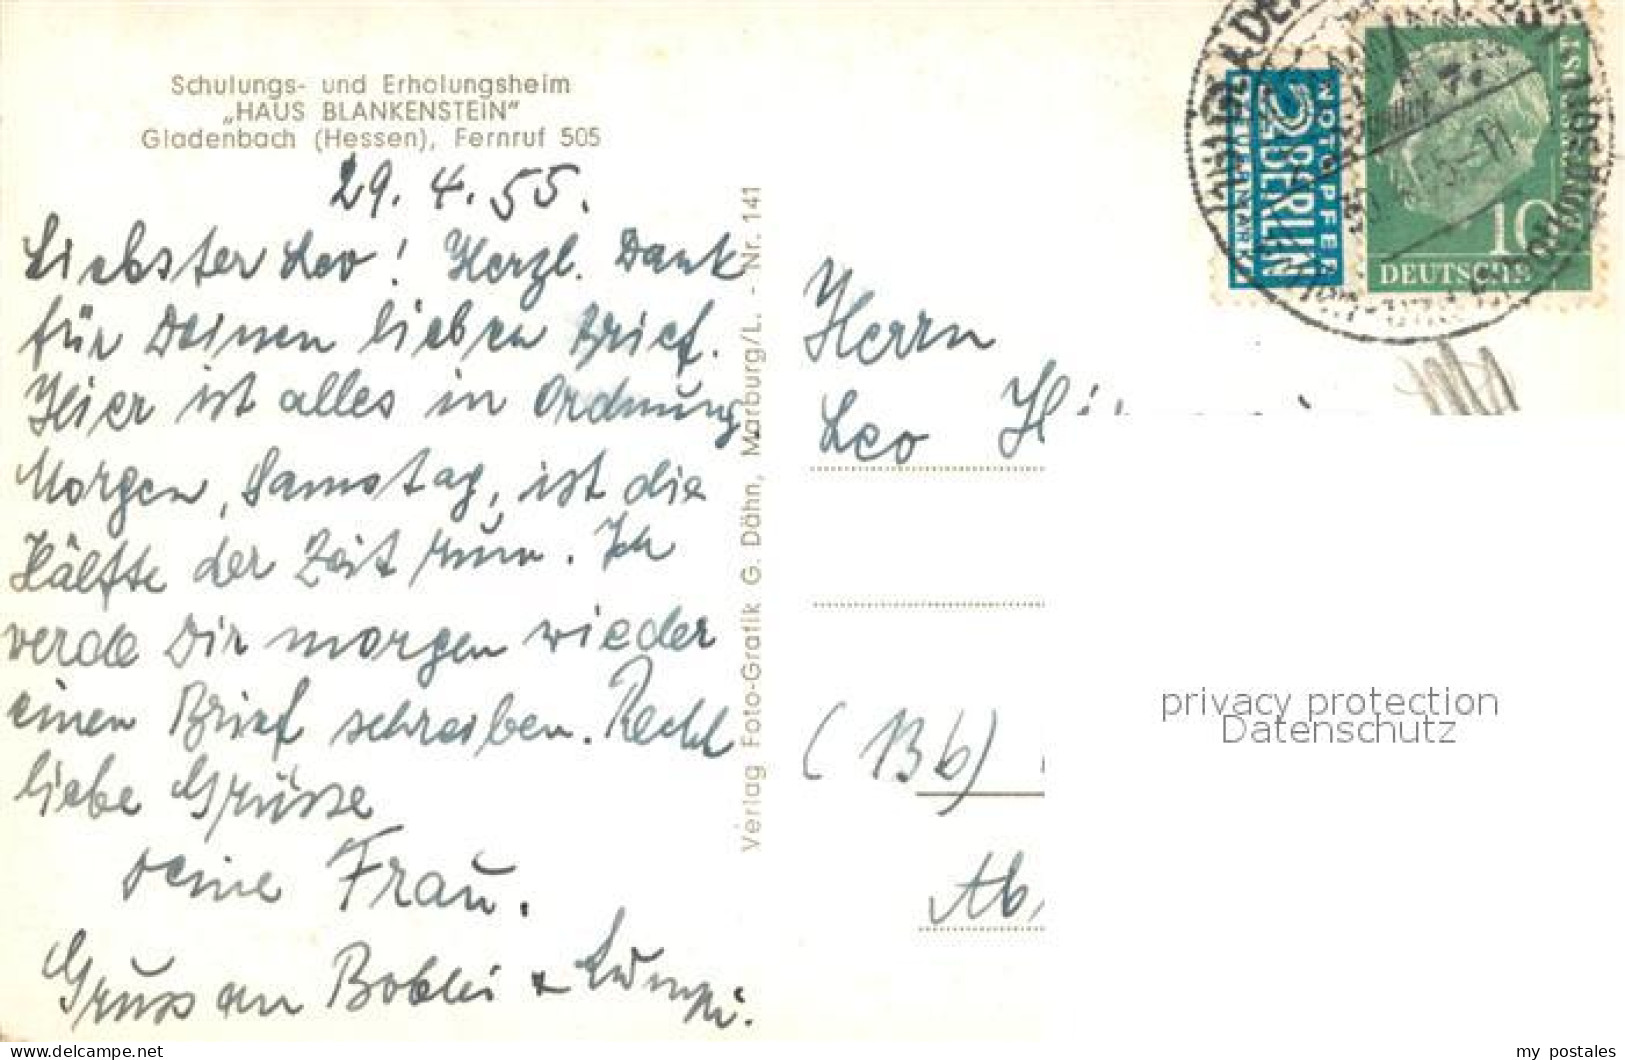 Schulungs- und Erholungsheim
„HAUS BLANKENSTEIN“
Gladenbach (Hessen), Fernruf 505
29. 4. 55.
Liebster Leo! Herzl. Dank
für Deinen lieben Brief.
Hier ist alles in Ordnung.
Morgen, Samstag, ist die
Hälfte der Zeit rum. Ich
werde Dir morgen wieder
einen Brief schreiben. Recht
liebe Grüsse
Deine Frau.
Gruss an
Verlag Foto-Grafik G. Dähn, Marburg/L. - Nr. 141
NOTOPFER
2 BERLIN
STEUERMARKE
10
DEUTSCHE
Herrn
Leo
(13b)
privacy protection
Datenschutz
my postales